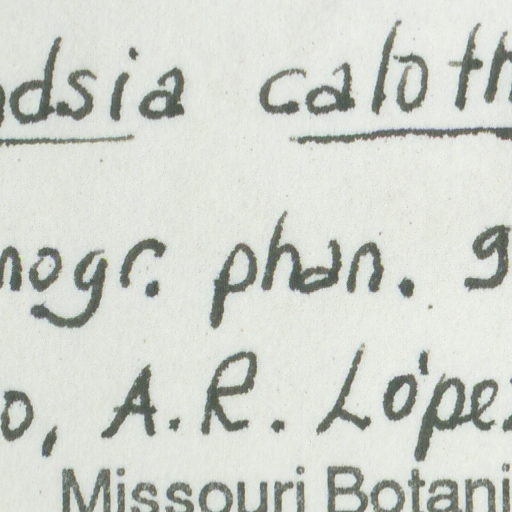 ndsia caloth
nogr. phan. 9
o, A.R. Lópe
Missouri Botani